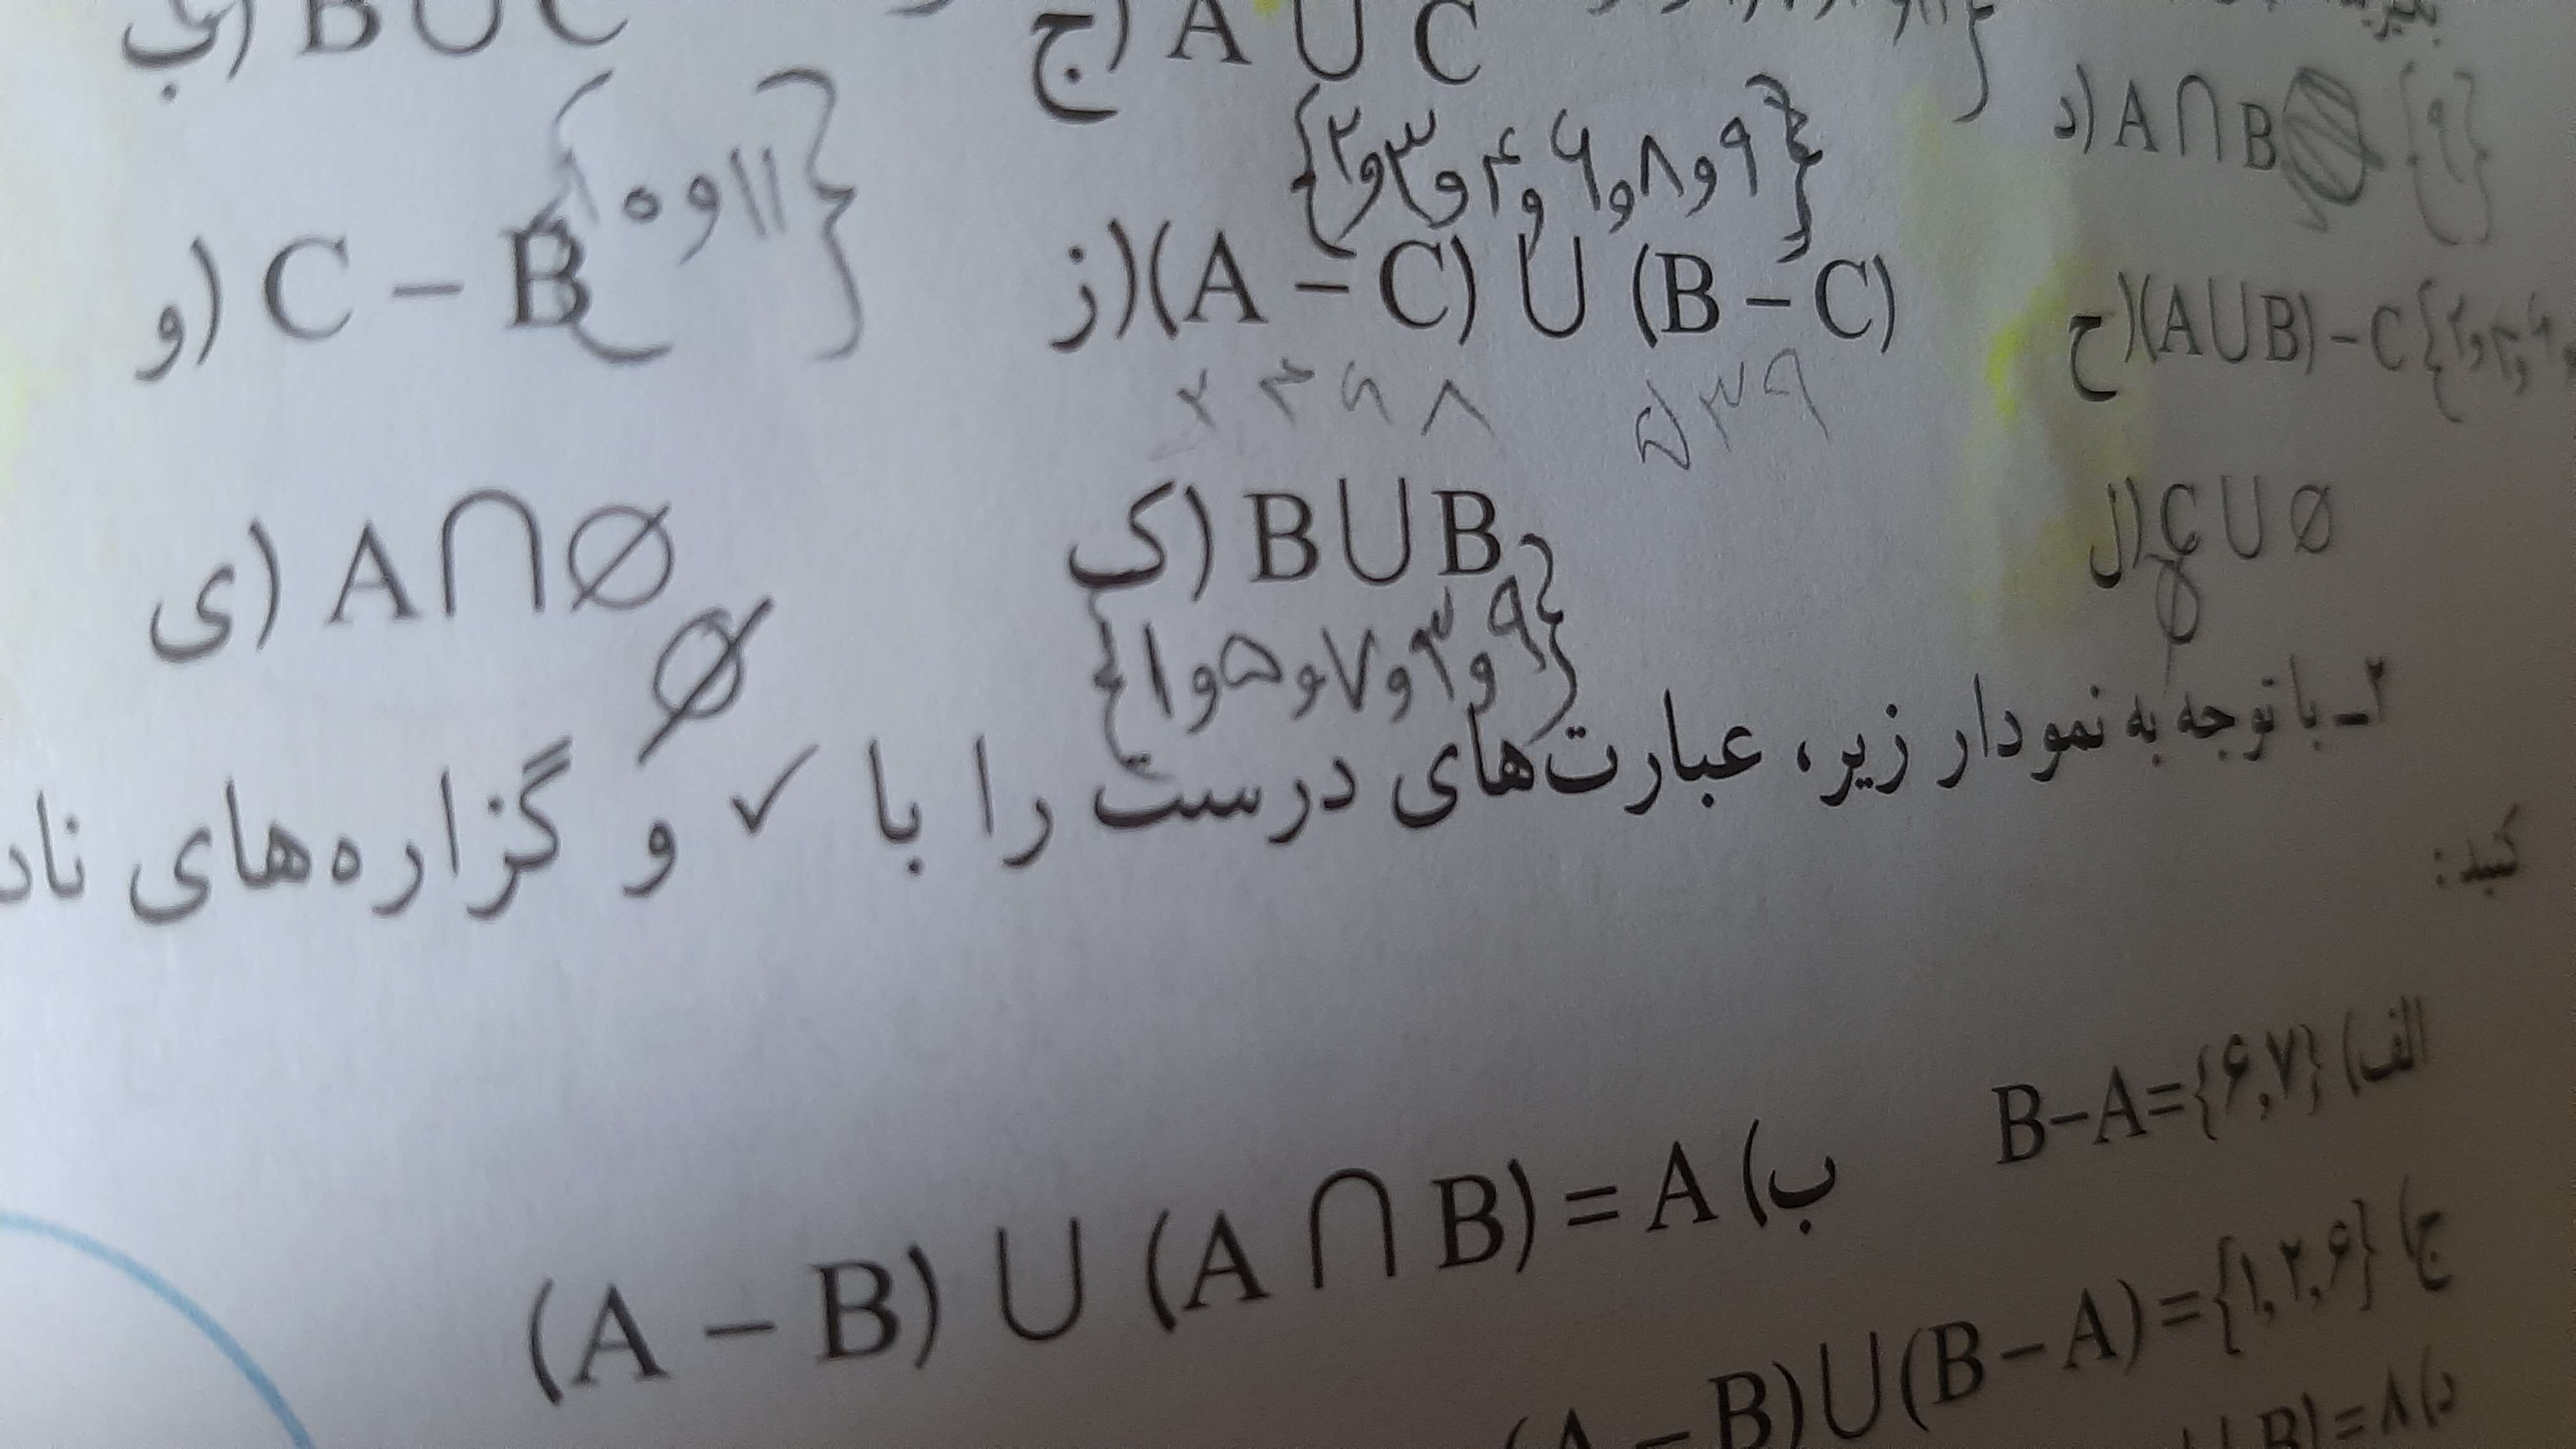 ج) A ∪ C ب) B ∪ C
د) A ∩ B {۹}
{۲و۳و۴و۶و۸و۹}
{۱۰و۱۱}
ح) (A∪B)−C ز) (A − C) ∪ (B − C) و) C − B
۲ ۴ ۶ ۸ ۵ ۳ ۹
ل) C ∪ ∅ ک) B ∪ B ی) A ∩ ∅
{۱و۵و۷و۳و۹} ∅
۲ـ با توجه به نمودار زیر، عبارت‌های درست را با ✓ و گزاره‌های ناد
کنید:
الف) B−A={۶,۷} ب) (A − B) ∪ (A ∩ B) = A
ج) (A − B)∪(B − A)={۱,۲,۶}
د) B)=۸